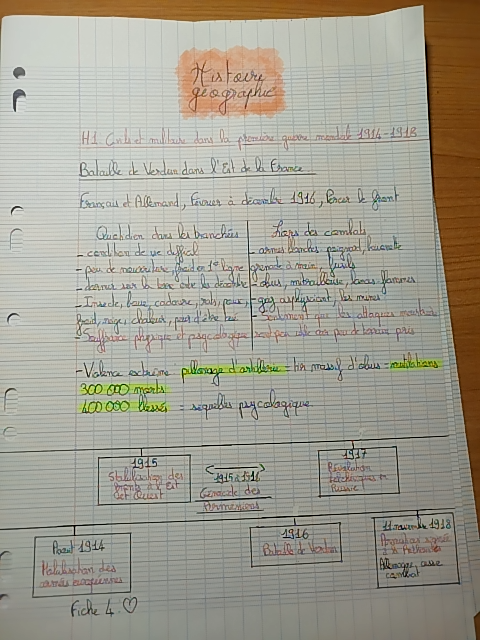 Histoire
géographie
H1 Civils et militaire dans la première guerre mondiale 1914-1918
Bataille de Verdun dans l'Est de la France
Français et Allemand, Février à décembre 1916, Percer le front
Quotidien dans les tranchées
- condition de vie difficil
- peu de nourriture, froid en 1re ligne
- dormir sur la terre entre les
- Insecte, boue, cadavre, rats, poux,
froid, neige, chaleur, peur d'être tué
- Souffrance physique et psycologique
Lors des combats
- armes blanches poignard, baïonette
grenade à main, fusils
- obus, mitrailleuse, lances flammes
- gaz asphyxiant, les mines
que les attaques
peu de terrain pris
- Violence extrème: pillonage d'artillerie = tir massif d'obus = mutilations
300 000 morts
400 000 blessés = séquelles psycologique
1915
Stabilisation des
fronts à l'Est
et Ouest
1915 à 1916
Génocide des
Arméniens
1917
Révolution
Russie
Aout 1914
Mobilisation des
armées européennes
1916
Bataille de Verdun
11 novembre 1918
Armistice signée
à Rethondes
Allemagne, cesse
combat
Fiche 4.♡